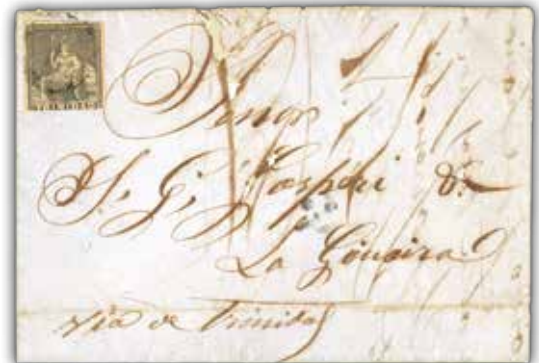 Senor
S. G. Caspari &
La Gouaira
via de Trinidad